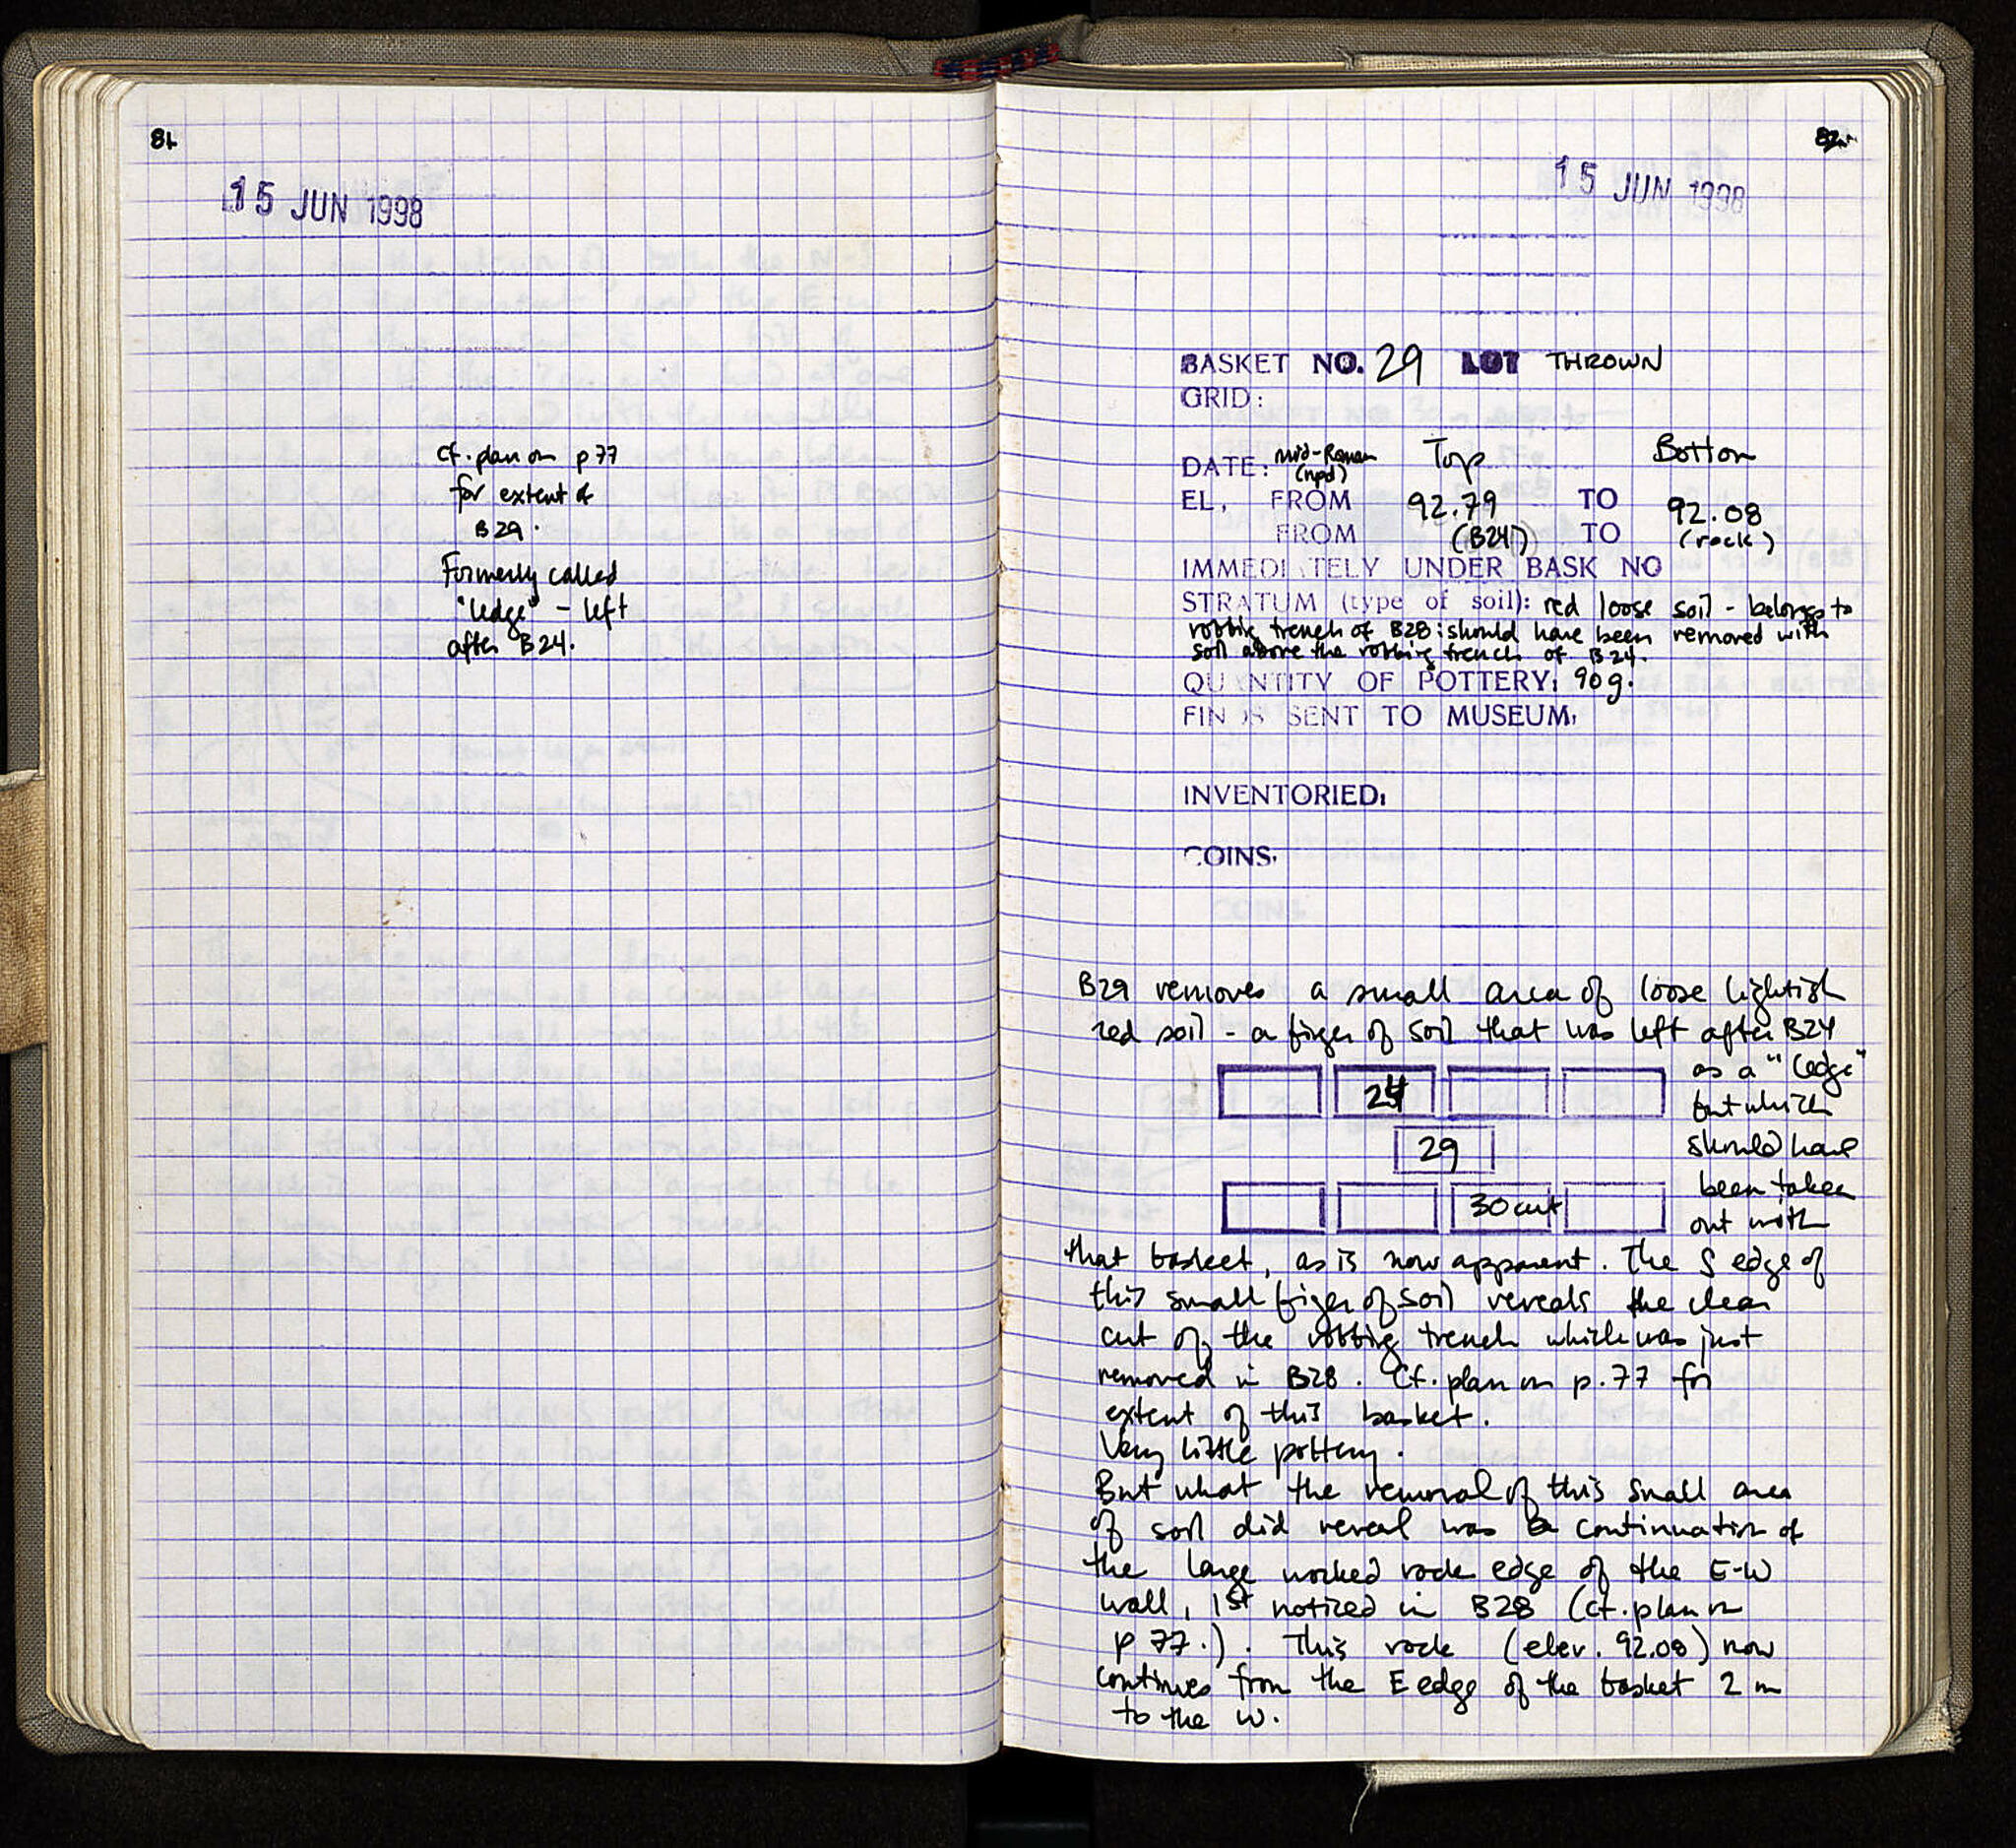 81
15 JUN 1998
cf. plan on p 77
for extent of
B29.
Formerly called
"ledge" - left
after B24.
82
15 JUN 1998
BASKET NO. 29 LOT THROWN
GRID:
DATE: mid-Roman (npd) Top Bottom
EL, FROM 92.79 TO 92.08
FROM (B24) TO (rock)
IMMEDIATELY UNDER BASK NO
STRATUM (type of soil): red loose soil - belongs to
robbing trench of B28: should have been removed with
soil above the robbing trench of B24.
QUANTITY OF POTTERY: 90g.
FINDS SENT TO MUSEUM:
INVENTORIED:
COINS:
B29 removes a small area of loose lightish
red soil - a finger of soil that was left after B24
as a "ledge"
24
but which
29
should have
been taken
30 cut
out with
that basket, as is now apparent. The S edge of
this small finger of soil reveals the clear
cut of the robbing trench which was just
removed in B28. Cf. plan on p. 77 for
extent of this basket.
Very little pottery.
But what the removal of this small area
of soil did reveal was a continuation of
the large worked rock edge of the E-W
wall, 1st noticed in B28 (cf. plan on
p 77.). This rock (elev. 92.08) now
continues from the E edge of the basket 2 m
to the W.